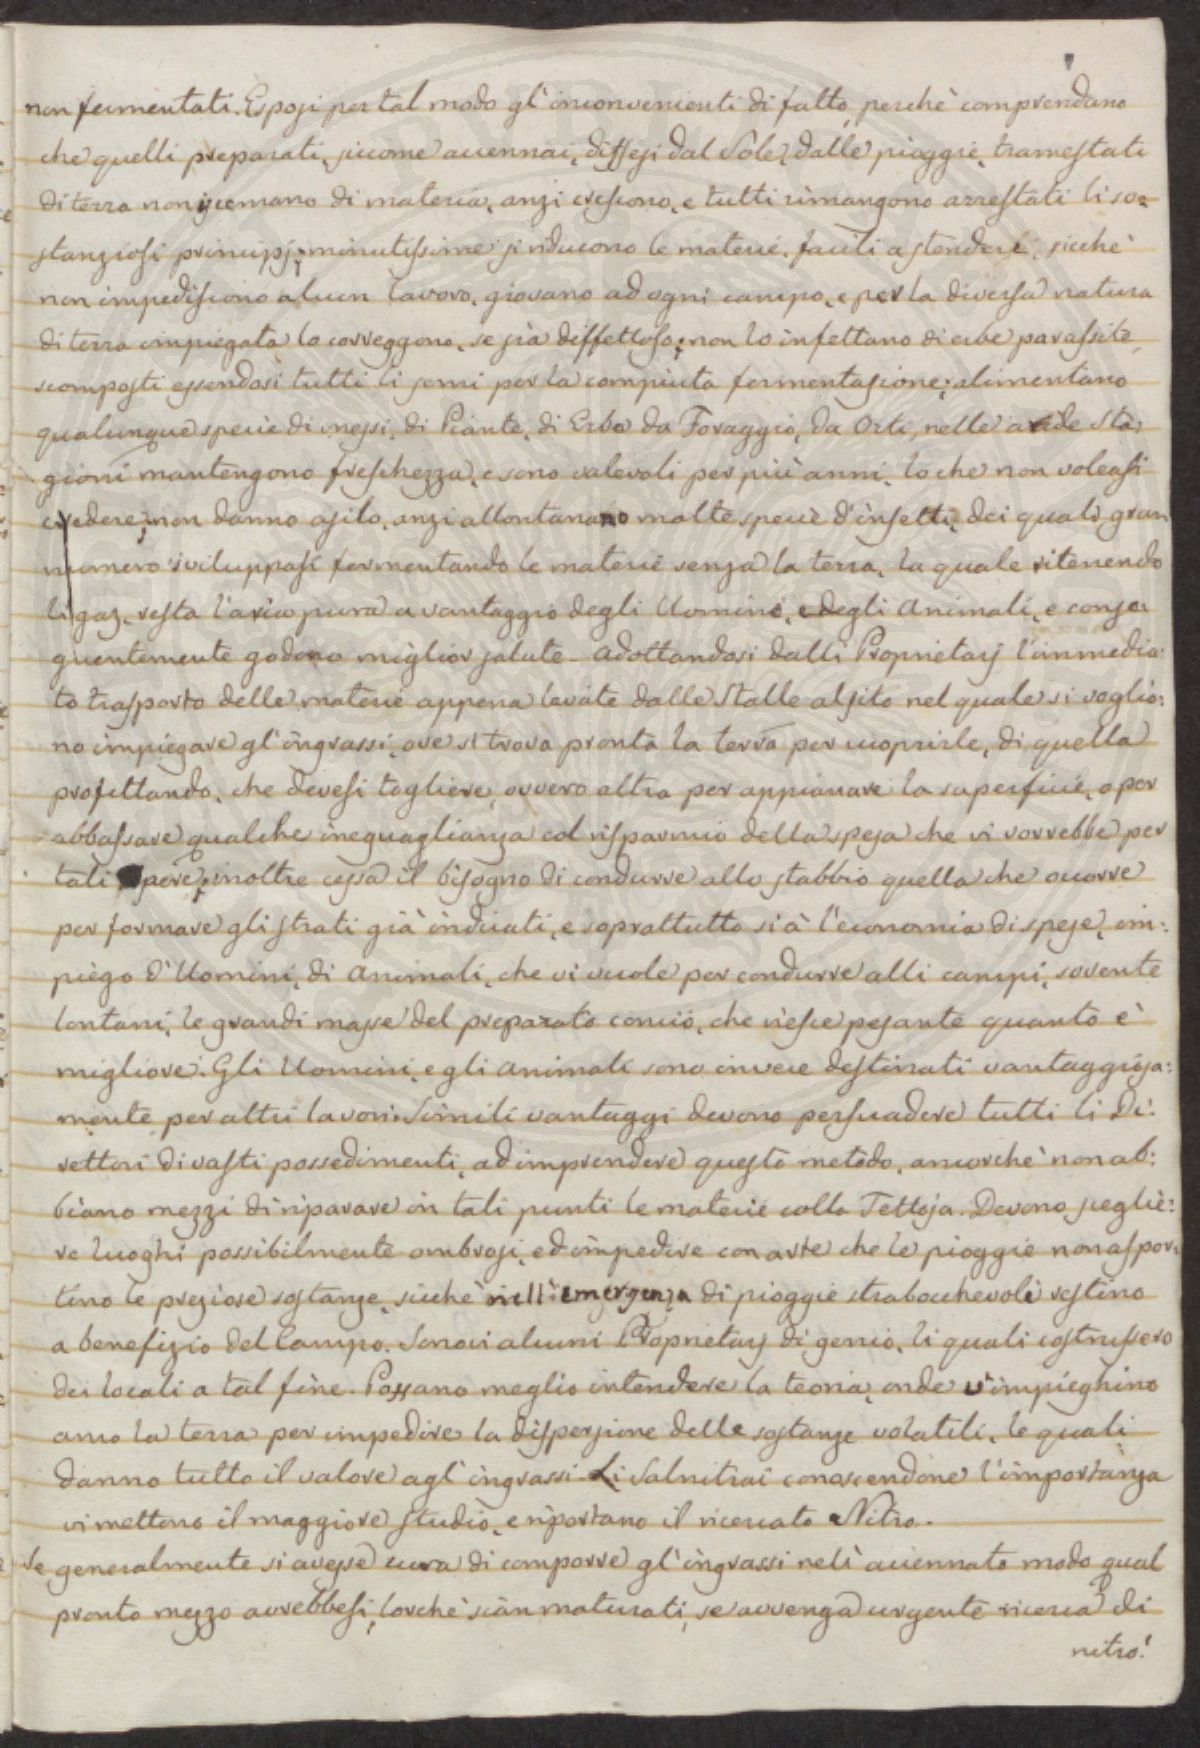 non fermentati. Esposi per tal modo gl'inconvenienti di fatto, perchè comprendano
che quelli preparati, siccome accennai, diffesi dal Sole, dalle pioggie, tramestati
di terra non iscemano di materia, anzi crescono, e tutti rimangono arrestati li so=
stanziosi principj; minutissime si riducono le materie, facili a stendersi, sicchè
non impediscono alcun lavoro, giovano ad ogni campo, e per la diversa natura
di terra impiegata lo correggono, se sia diffettoso; non lo infettano di erbe parassite,
scomposti essendosi tutti li semi per la compiuta fermentazione; alimentano
qualunque specie di messi, di Piante, di Erbe da Foraggio, da Orti, nelle aride sta=
gioni mantengono freschezza, e sono valevoli per più anni, lo che non voleasi
credere; non danno asilo, anzi allontanano molte specie d'insetti, dei quali gran
numero sviluppasi fermentando le materie senza la terra, la quale ritenendo
li gaz, resta l'aria pura a vantaggio degli Uomini, e degli animali, e conse=
guentemente godono miglior salute. Adottandosi dalli Proprietarj l'immedia=
to trasporto delle materie appena levate dalle Stalle al sito nel quale si voglio=
no impiegare gl'ingrassi, ove si trova pronta la terra per cuoprirle, di quella
profittando, che devesi togliere, ovvero altra per appianare la superficie, o per
abbassare qualche ineguaglianza col risparmio della spesa che vi vorrebbe per
tali opere; inoltre cessa il bisogno di condurre allo stabbio quella che occorre
per formare gli strati già indicati, e soprattutto si à l'economia di spese, im=
piego d'Uomini, di animali, che vi vuole per condurre alli campi, sovente
lontani, le grandi masse del preparato concio, che riesce pesante quanto è
migliore. Gli Uomini, e gli animali sono invece destinati vantaggiosa=
mente per altri lavori. Simili vantaggi devono persuadere tutti li Di=
rettori di vasti possedimenti, ad imprendere questo metodo, ancorchè non ab=
biano mezzi di riparare in tali punti le materie colla Tettoja. Devono sceglie=
re luoghi possibilmente ombrosi, ed impedire con arte che le pioggie non aspor=
tino le preziose sostanze, sicchè nell'emergenza di pioggie strabocchevoli restino
a benefizio del Campo. Sonovi alcuni Proprietarj di genio, li quali costrussero
dei locali a tal fine. Possano meglio intendere la teoria, onde v'impieghino
anco la terra per impedire la dispersione delle sostanze volatili, le quali
danno tutto il valore agl'ingrassi. Li Salnitrai conoscendone l'importanza
vi mettono il maggiore studio, e riportano il ricercato Nitro.
Se generalmente si avesse cura di comporre gl'ingrassi nell'accennato modo qual
pronto mezzo avrebbesi, lorchè sian maturati, se avvenga urgente ricerca di
nitro!